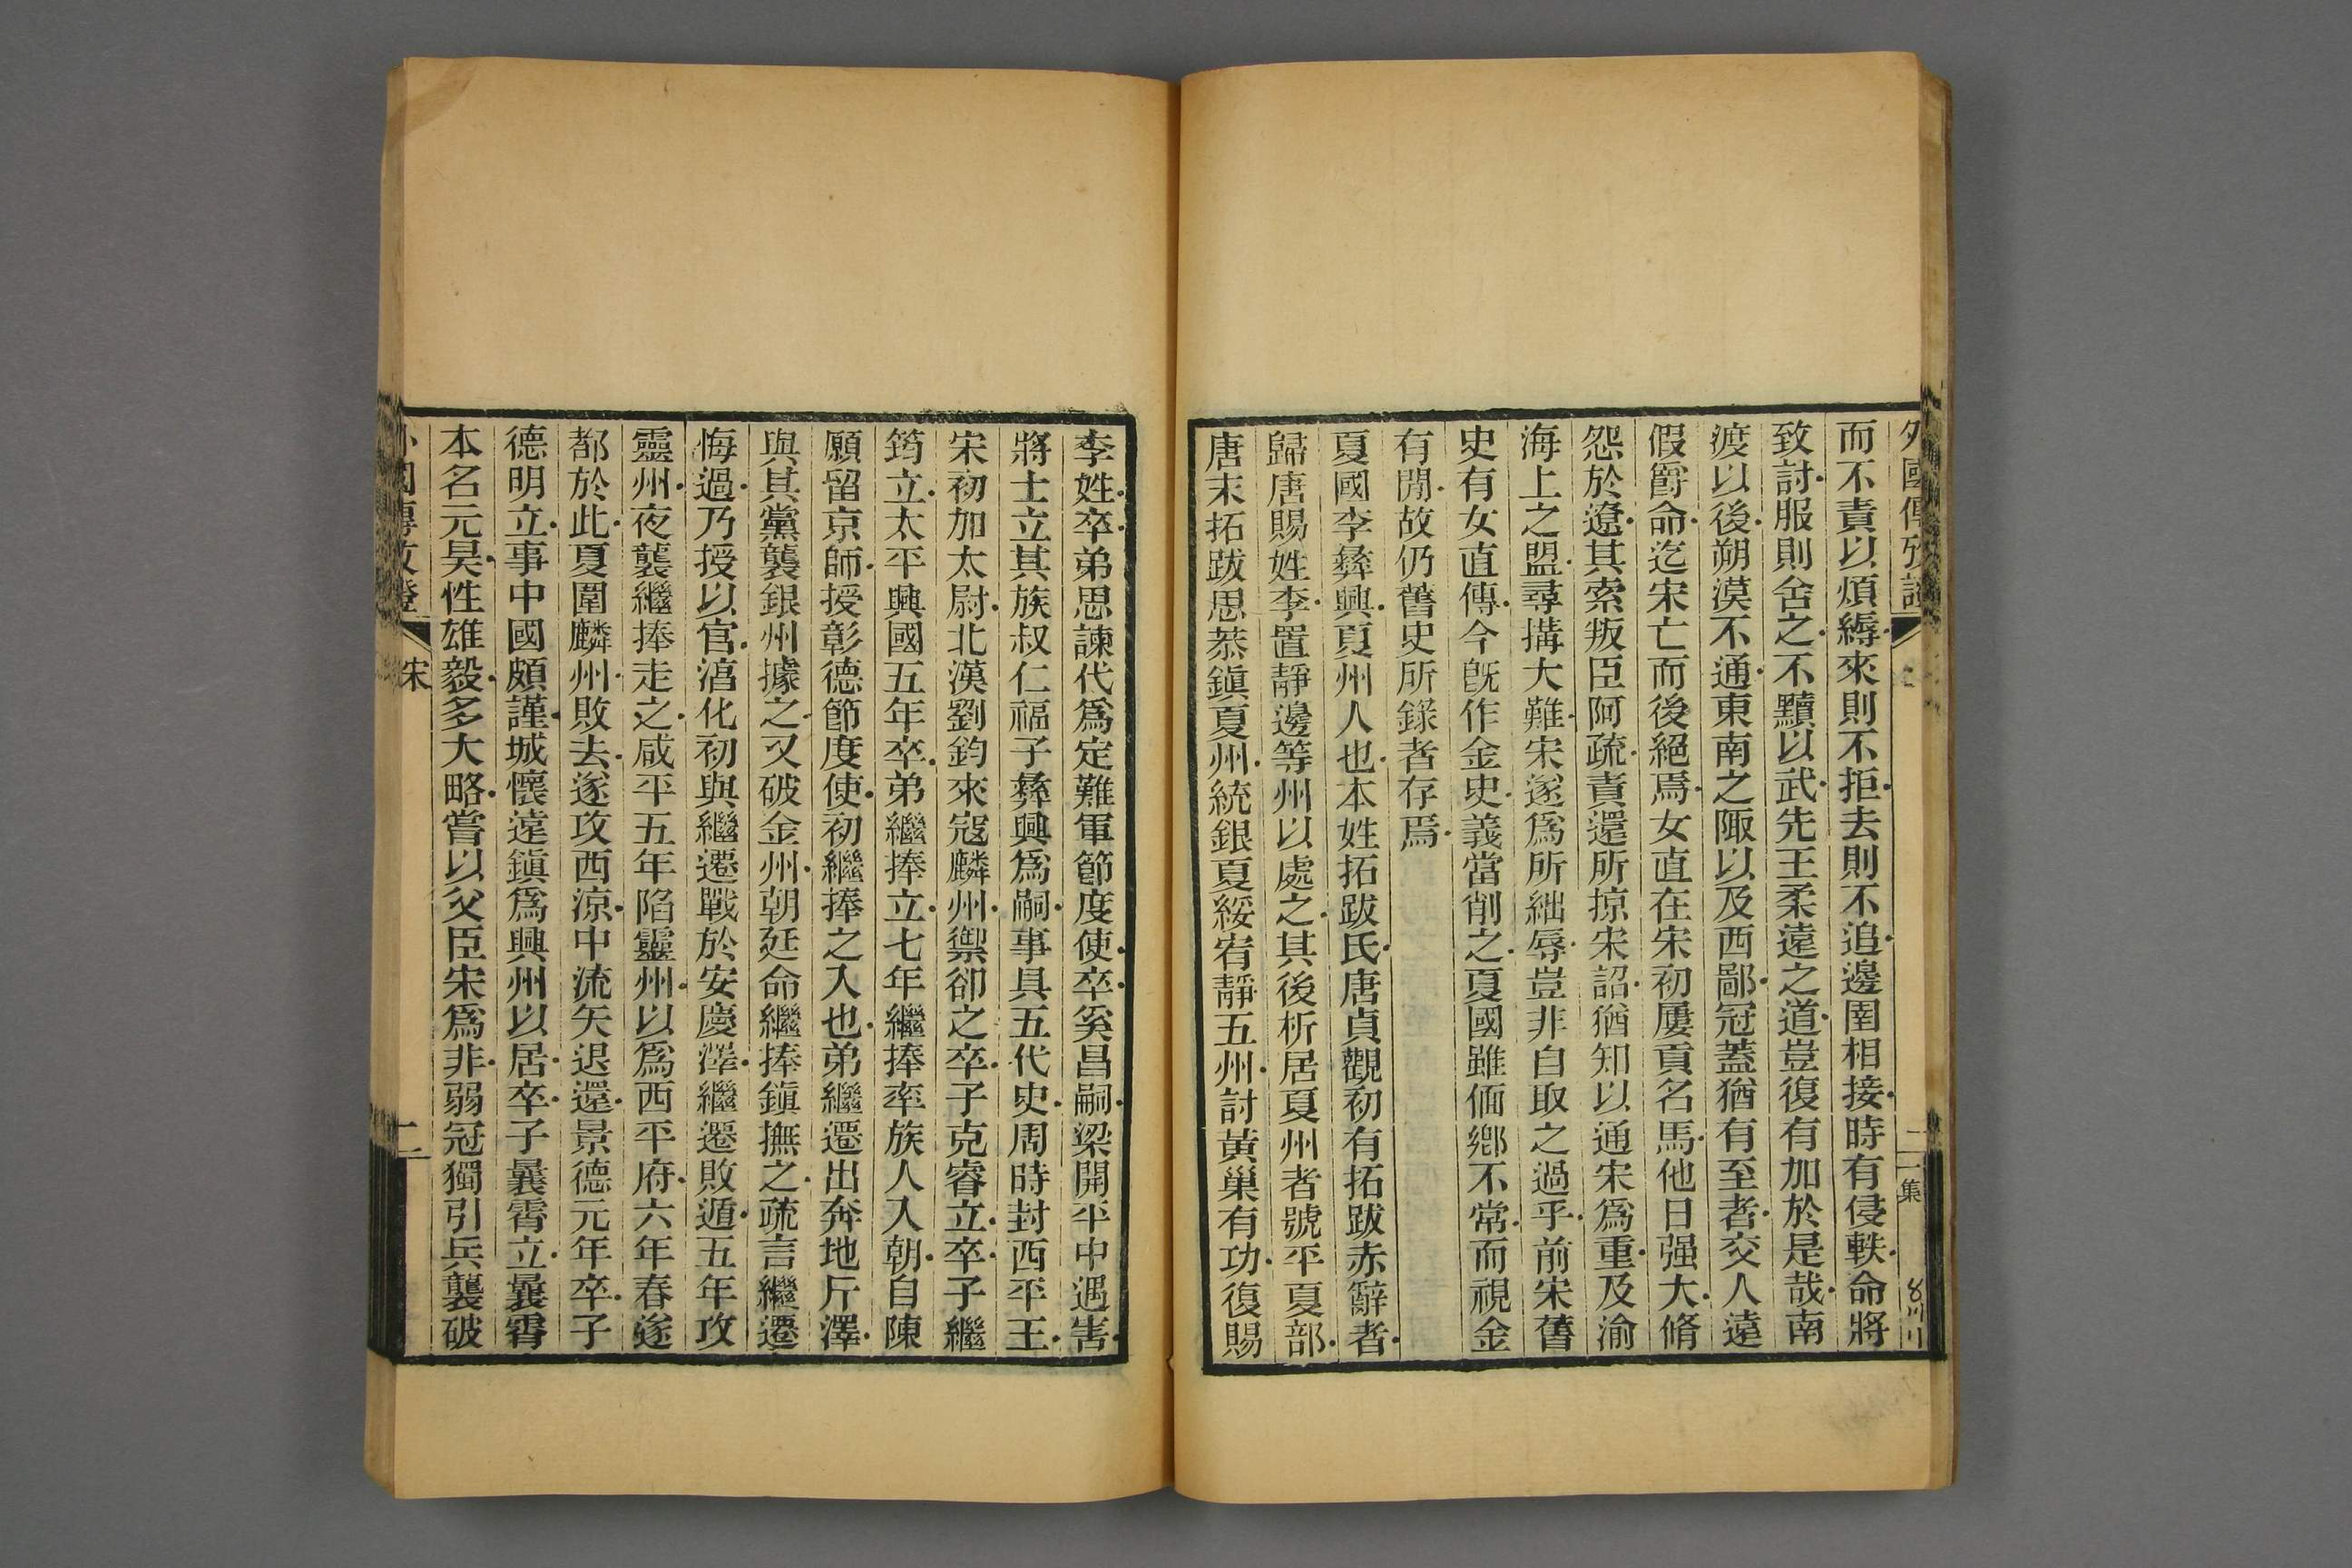 外國傳攷證
二集
而不責以煩縟來則不拒去則不追邊圉相接時有侵軼命將
致討服則舍之不黷以武先王柔遠之道豈復有加於是哉南
渡以後朔漠不通東南之陬以及西鄙冠蓋猶有至者交人遠
假爵命迄宋亡而後絕焉女直在宋初屢貢名馬他日强大脩
怨於遼其索叛臣阿疏責還所掠宋詔猶知以通宋爲重及渝
海上之盟尋搆大難宋遂爲所絀辱豈非自取之過乎前宋舊
史有女直傳今旣作金史義當削之夏國雖偭鄕不常而視金
有閒故仍舊史所錄者存焉
夏國李彝興夏州人也本姓拓跋氏唐貞觀初有拓跋赤辭者
歸唐賜姓李置靜邊等州以處之其後析居夏州者號平夏部
唐末拓跋思恭鎭夏州統銀夏綏宥靜五州討黃巢有功復賜
李姓卒弟思諫代爲定難軍節度使卒奚昌嗣梁開平中遇害
將士立其族叔仁福子彝興爲嗣事具五代史周時封西平王
宋初加太尉北漢劉鈞來寇麟州禦卻之卒子克睿立卒子繼
筠立太平興國五年卒弟繼捧立七年繼捧率族人入朝自陳
願留京師授彰德節度使初繼捧之入也弟繼遷出奔地斤澤
與其黨襲銀州據之又破金州朝廷命繼捧鎭撫之疏言繼遷
悔過乃授以官淳化初與繼遷戰於安慶澤繼遷敗遁五年攻
靈州夜襲繼捧走之咸平五年陷靈州以爲西平府六年春遂
都於此夏圍麟州敗去遂攻西涼中流矢退還景德元年卒子
德明立事中國頗謹城懷遠鎭爲興州以居卒子曩霄立曩霄
本名元昊性雄毅多大略嘗以父臣宋爲非弱冠獨引兵襲破
外國傳攷證
宋
二